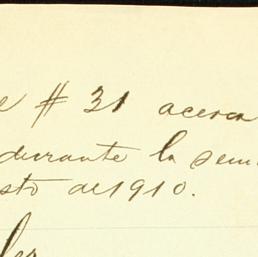 # 31 acerca
durante la sem
sto de 1910.